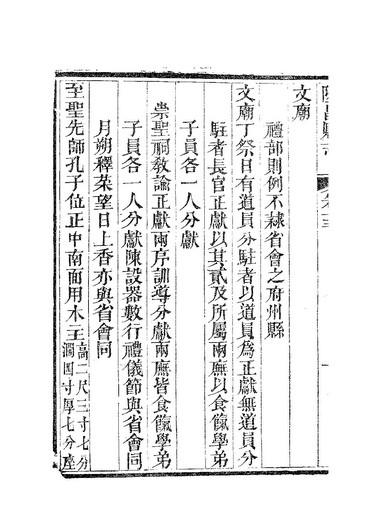 文廟
禮部則例不隸省會之府州縣
文廟丁祭日有道員分駐者以道員為正獻無道員分
駐者長官正獻以其貳及所屬兩廡以食餼學弟
子員各一人分獻
崇聖祠教諭正獻兩序訓導分獻兩廡皆食餼學弟
子員各一人分獻陳設器數行禮儀節與省會同
月朔釋菜望日上香亦與省會同
至聖先師孔子位正中南面用木主高二尺三寸七分
濶四寸厚七分座